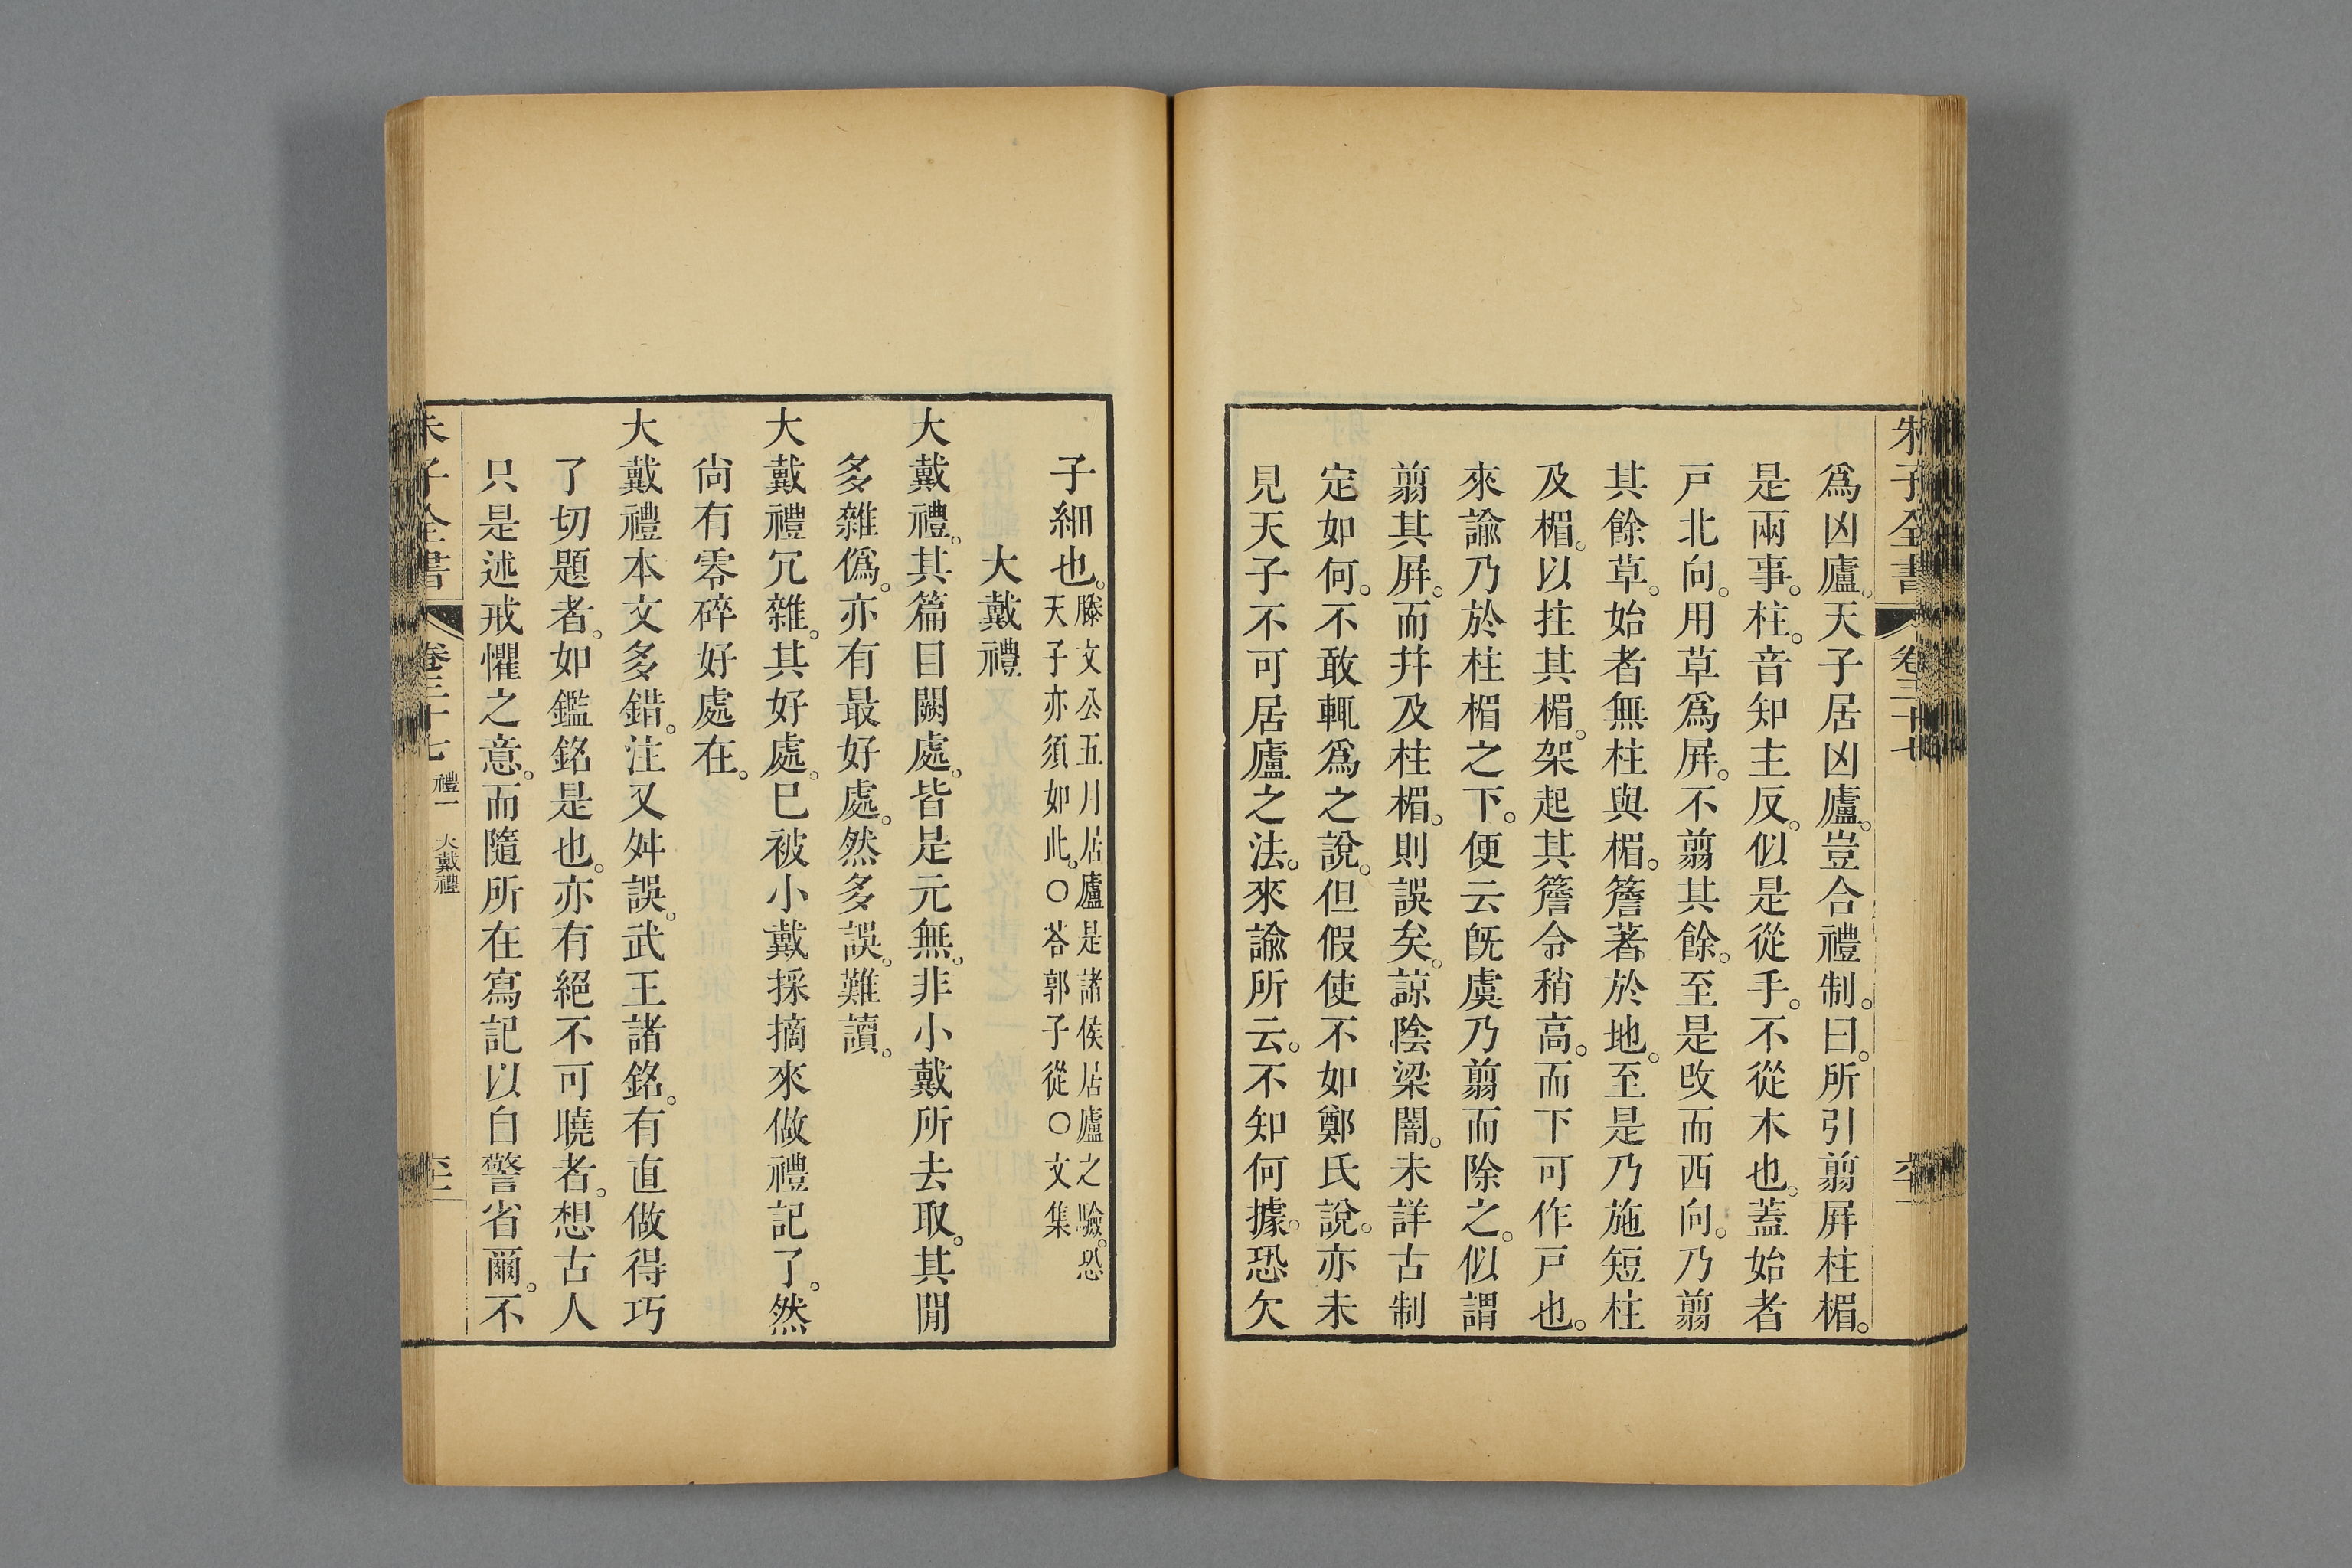 朱子全書 卷三十七
爲凶廬。天子居凶廬。豈合禮制。曰。所引翦屛柱楣。
是兩事。柱。音知主反。似是從手。不從木也。蓋始者
戸北向。用草爲屛。不翦其餘。至是改而西向。乃翦
其餘草。始者無柱與楣。簷著於地。至是乃施短柱
及楣。以拄其楣。架起其簷令稍高。而下可作戸也。
來諭乃於柱楣之下。便云旣虞乃翦而除之。似謂
翦其屛。而幷及柱楣。則誤矣。諒陰梁闇。未詳古制
定如何。不敢輒爲之說。但假使不如鄭氏說。亦未
見天子不可居廬之法。來諭所云。不知何據。恐欠
子細也。滕文公五月居廬是諸侯居廬之驗。恐
天子亦須如此。○荅郭子從○文集
大戴禮
大戴禮。其篇目闕處。皆是元無。非小戴所去取。其閒
多雜僞。亦有最好處。然多誤。難讀。
大戴禮冗雜。其好處。已被小戴採摘來做禮記了。然
尙有零碎好處在。
大戴禮本文多錯。注又舛誤。武王諸銘。有直做得巧
了切題者。如鑑銘是也。亦有絕不可曉者。想古人
只是述戒懼之意。而隨所在寫記以自警省爾。不
朱子全書 卷三十七 禮一 大戴禮